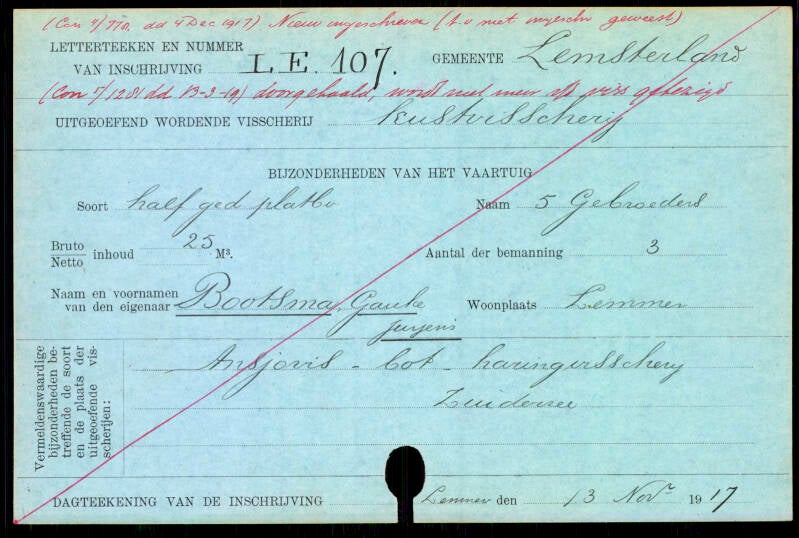 (Con 4/770. dd 4 Dec 1917) Nieuw ingeschreven (t.v niet ingeschr geweest)
LETTERTEEKEN EN NUMMER
VAN INSCHRIJVING L.E. 107.
GEMEENTE Lemsterland
(Con 7/1281 dd 13-3-19) doorgehaald, wordt niet meer visscherij gebezigd
UITGEOEFEND WORDENDE VISSCHERIJ kustvisscherij
BIJZONDERHEDEN VAN HET VAARTUIG
Soort half ged platb
Naam 5 Gebroeders
Bruto
Netto
inhoud 25 M³.
Aantal der bemanning 3
Naam en voornamen
van den eigenaar Bootsma, Gauke
Jurjens
Woonplaats Lemmer
Vermeldenswaardige
bijzonderheden be-
treffende de soort
en de plaats der
uitgeoefende vis-
scherijen:
Ansjovis - bot - haringvisscherij
Zuiderzee
DAGTEEKENING VAN DE INSCHRIJVING Lemmer den 13 Nov^r 1917